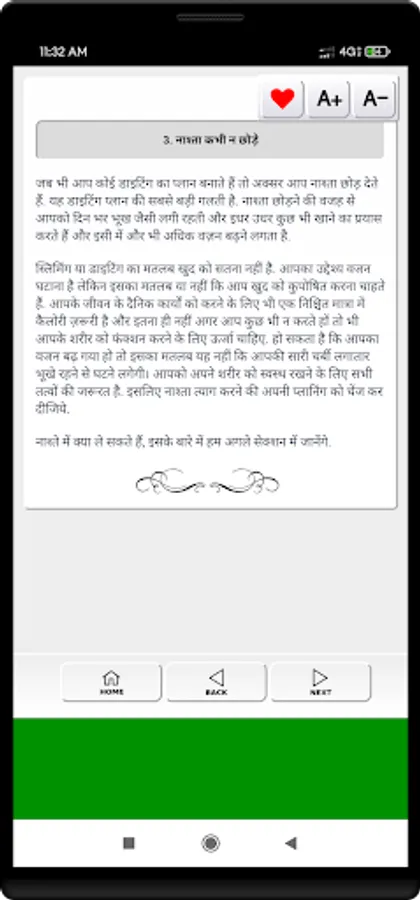 11:32 AM
4G
A+
A−
3. नाश्ता कभी न छोड़े
जब भी आप कोई डाइटिंग का प्लान बनाते हैं तो अक्सर आप नाश्ता छोड़ देते
हैं. यह डाइटिंग प्लान की सबसे बड़ी गलती है. नाश्ता छोड़ने की वजह से
आपको दिन भर भूख जैसी लगी रहती और इधर उधर कुछ भी खाने का प्रयास
करते हैं और इसी में और भी अधिक वज़न बढ़ने लगता है.
स्लिमिंग या डाइटिंग का मतलब खुद को सतना नहीं है. आपका उद्देश्य वजन
घटाना है लेकिन इसका मतलब या नहीं कि आप खुद को कुपोषित करना चाहते
हैं. आपके जीवन के दैनिक कार्यों को करने के लिए भी एक निश्चित मात्रा में
कैलोरी ज़रूरी है और इतना ही नहीं अगर आप कुछ भी न करते हों तो भी
आपके शरीर को फंक्शन करने के लिए उर्जा चाहिए. हो सकता है कि आपका
वजन बढ़ गया हो तो इसका मतलब यह नहीं कि आपकी सारी चर्बी लगातार
भूखे रहने से घटने लगेगी। आपको अपने शरीर को स्वस्थ रखने के लिए सभी
तत्वों की जरूरत है. इसलिए नाश्ता त्याग करने की अपनी प्लानिंग को चेंज कर
दीजिये.
नाश्ते में क्या ले सकते हैं, इसके बारे में हम अगले सेक्शन में जानेंगे.
HOME
BACK
NEXT